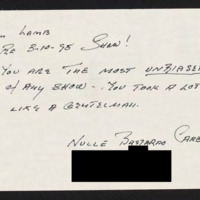 Lamb
RE 3-10-95 Show!
YOU ARE THE MOST UNBIASE
OF ANY SHOW -- YOU TOOK A LOT
LIKE A GENTELMAN.
NULLE BASTARRO